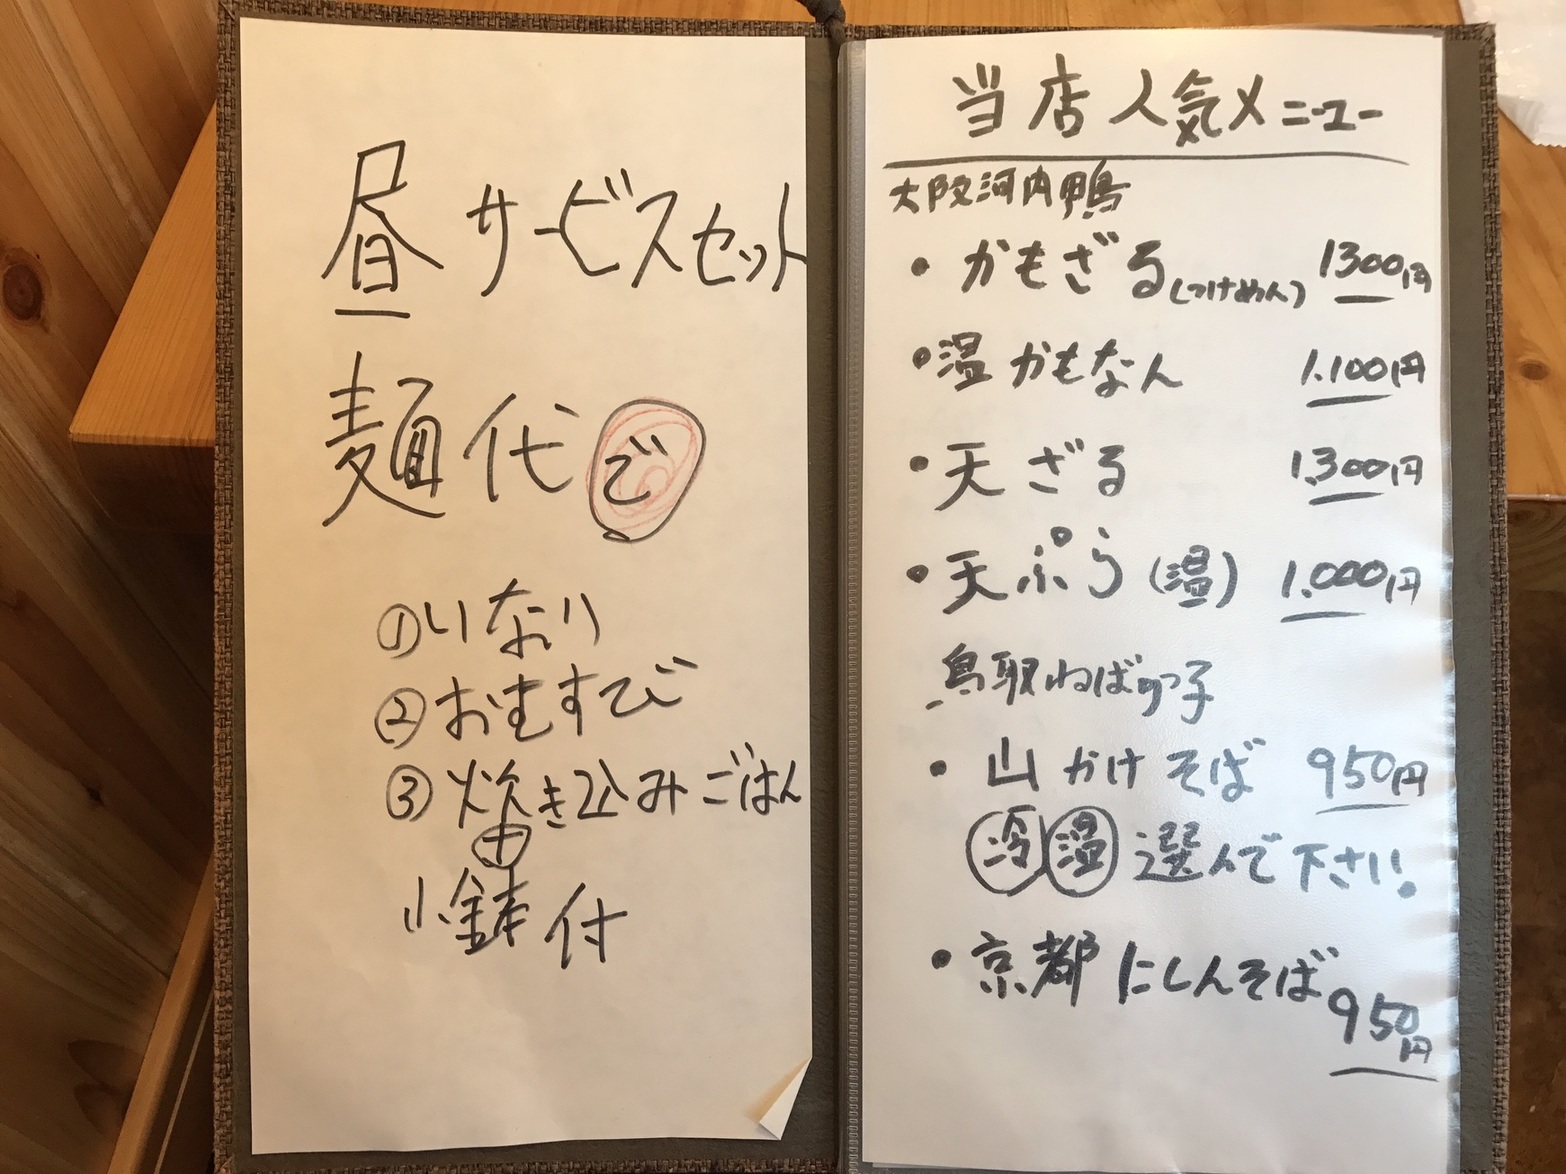 昼サービスセット
麺代で
①いなり
②おむすび
③炊き込みごはん
+
小鉢付
当店人気メニュー
大阪河内鴨
・かもざる(つけめん) 1300円
・温かもなん 1,100円
・天ざる 1,300円
・天ぷら(温) 1,000円
鳥取ねばりっ子
・山かけそば 950円
冷 温 選んで下さい。
・京都にしんそば
950円